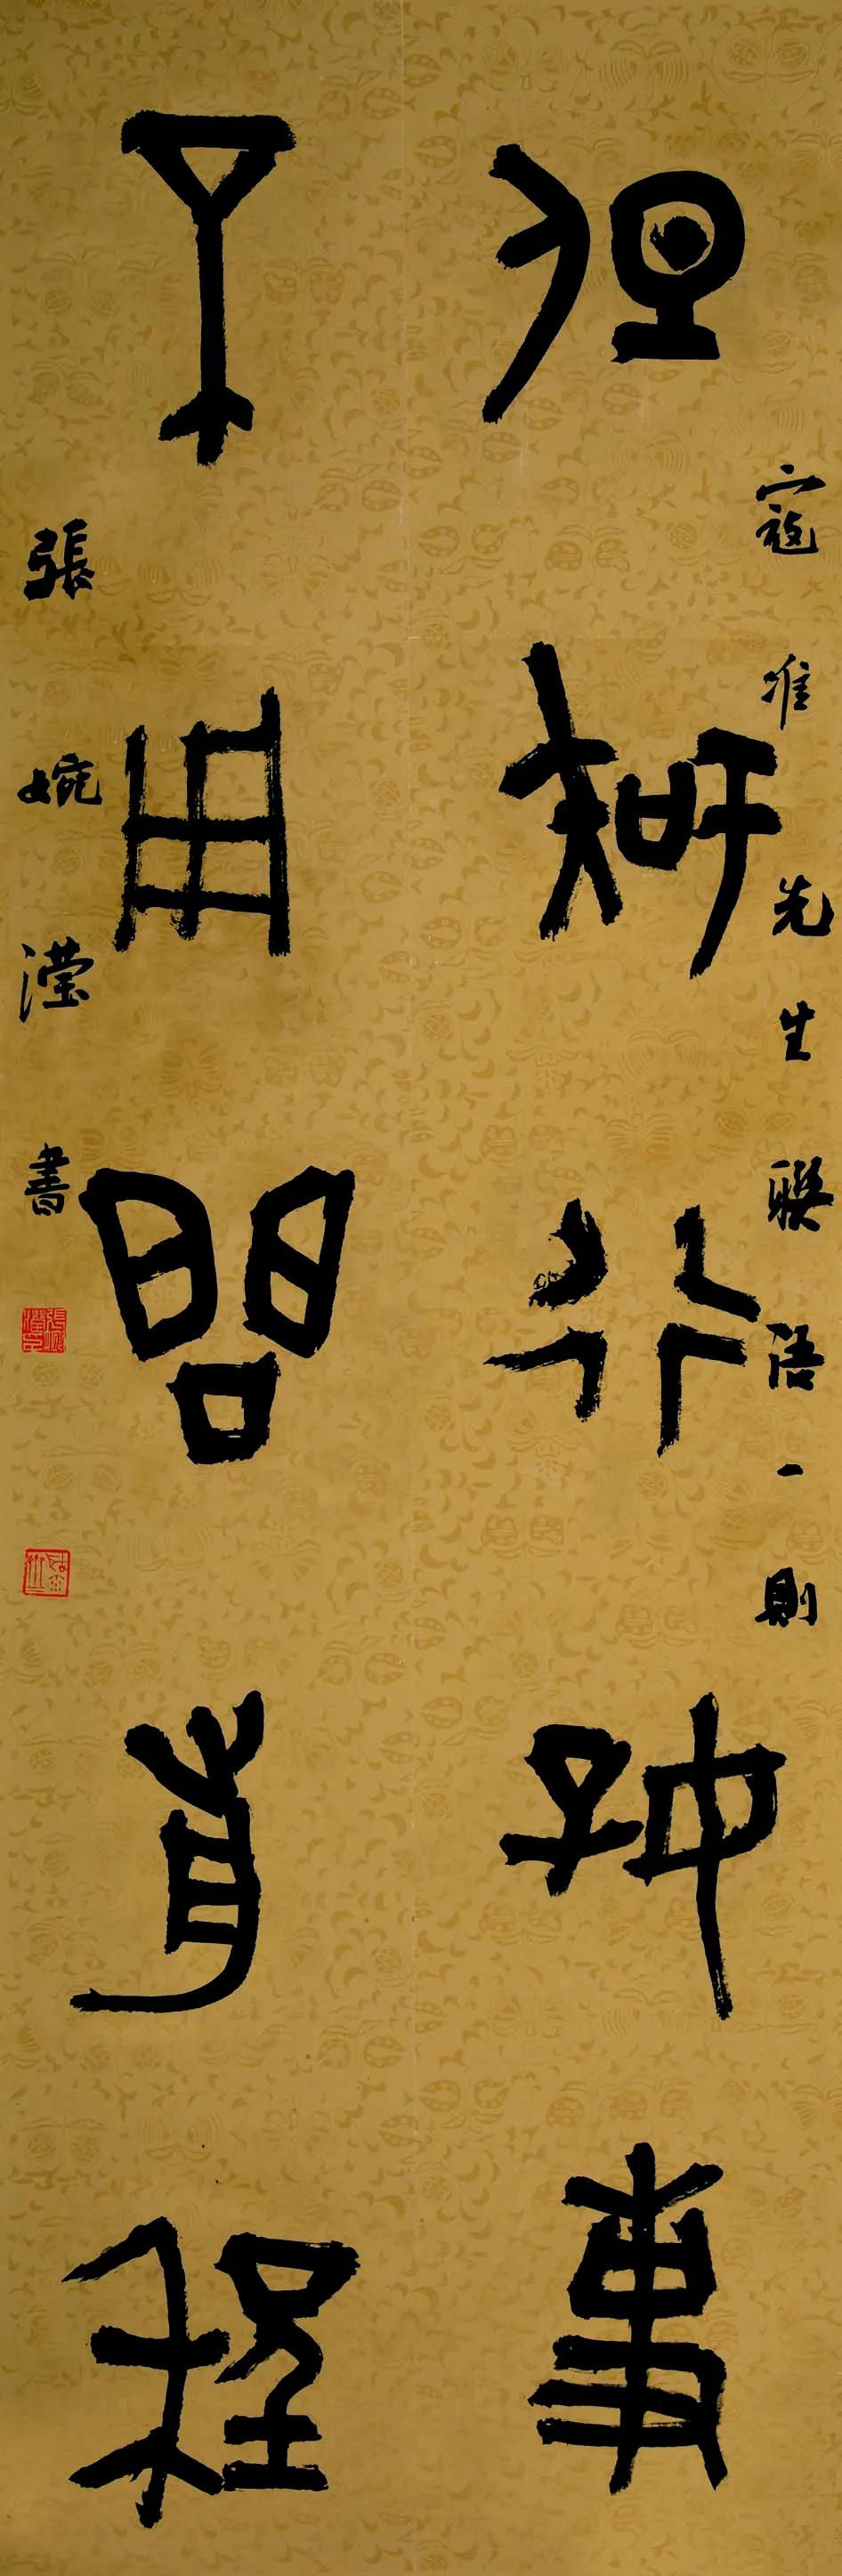 寇准先生聯語一則
但知行好事
不用問前程
張婉滢書